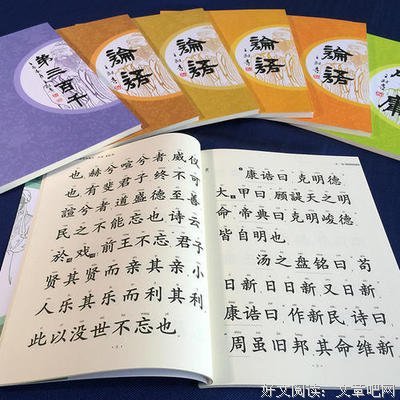 第三百千
論語
論語
論語
論語
庸
也赫兮喧兮者威仪
也有斐君子终不可
諠兮者道盛德至善
民之不能忘也诗云
於戏前王不忘君子
贤其贤而亲其亲小
人乐其乐而利其利
此以没世不忘也
康诰曰克明德
大甲曰顾諟天之明
命帝典曰克明峻德
皆自明也
汤之盘铭曰苟
日新日日新又日新
康诰曰作新民诗曰
周虽旧邦其命维新
好文阅读:文章吧网